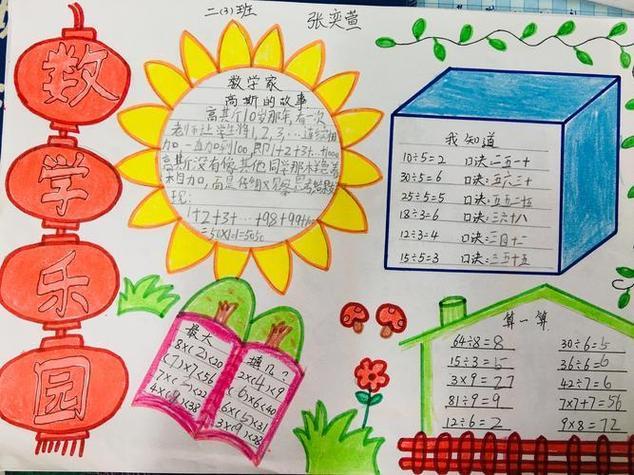 二(3)班
张奕萱
数
学
乐
园
数学家
高斯的故事
高斯10岁那年,有一次
老师让学生将1,2,3,…连续相
加,一直加到100,即1+2+3+…+100
高斯没有像其他同学那样急着
现:
1+2+3+…+98+99+100
我知道
10÷5=2 口诀:二五一十
30÷5=6 口诀:五六三十
25÷5=5 口诀:五五二十五
18÷3=6 口诀:三六十八
12÷3=4 口诀:三四十二
15÷5=3 口诀:三五十五
最大
8×(2)<20
(7)×7<56
填几?
2×(4)<9
6×(5)<31
算一算
64÷8=8 30÷6=5
15÷3=5 36÷6=6
3×9=27 42÷7=6
81÷9=9 7×7+7=56
12÷6=2 9×8=72